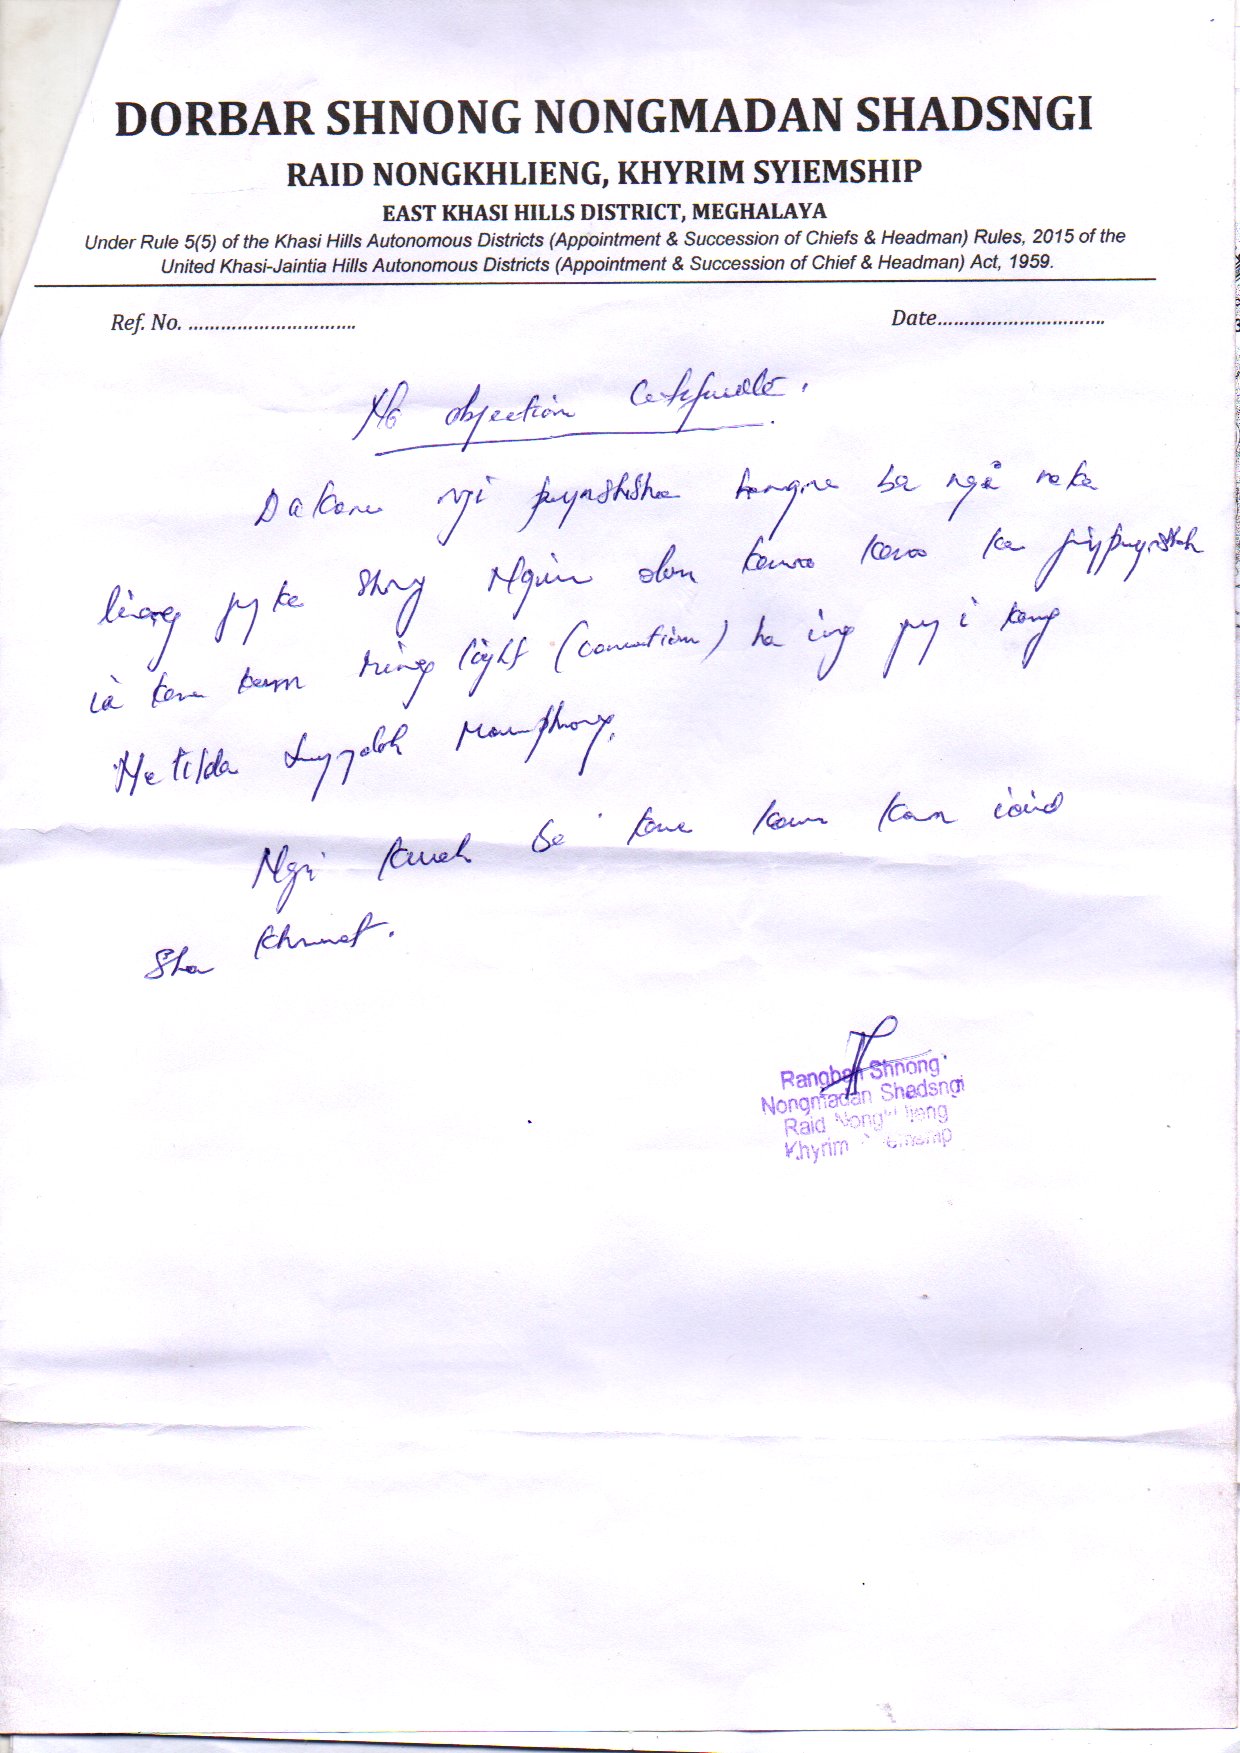 DORBAR SHNONG NONGMADAN SHADSNGI
RAID NONGKHLIENG, KHYRIM SYIEMSHIP
EAST KHASI HILLS DISTRICT, MEGHALAYA
Under Rule 5(5) of the Khasi Hills Autonomous Districts (Appointment & Succession of Chiefs & Headman) Rules, 2015 of the
United Khasi-Jaintia Hills Autonomous Districts (Appointment & Succession of Chief & Headman) Act, 1959.
Ref. No. ................................ Date................................
No objection
Da kane ngi pynshisha hangne ba ngi na ka
liang jy ka Shnong Ngim don kano kano ka jingpynthut
ïa kane kam ring light (connection) ha ing jy i kong
Matilda Lyngdoh Mawphlang.
Ngi kwah ba kane kam kan ïaid
Sha khmat.
Rangbah Shnong
Nongmadan Shadsngi
Raid
Khyrim